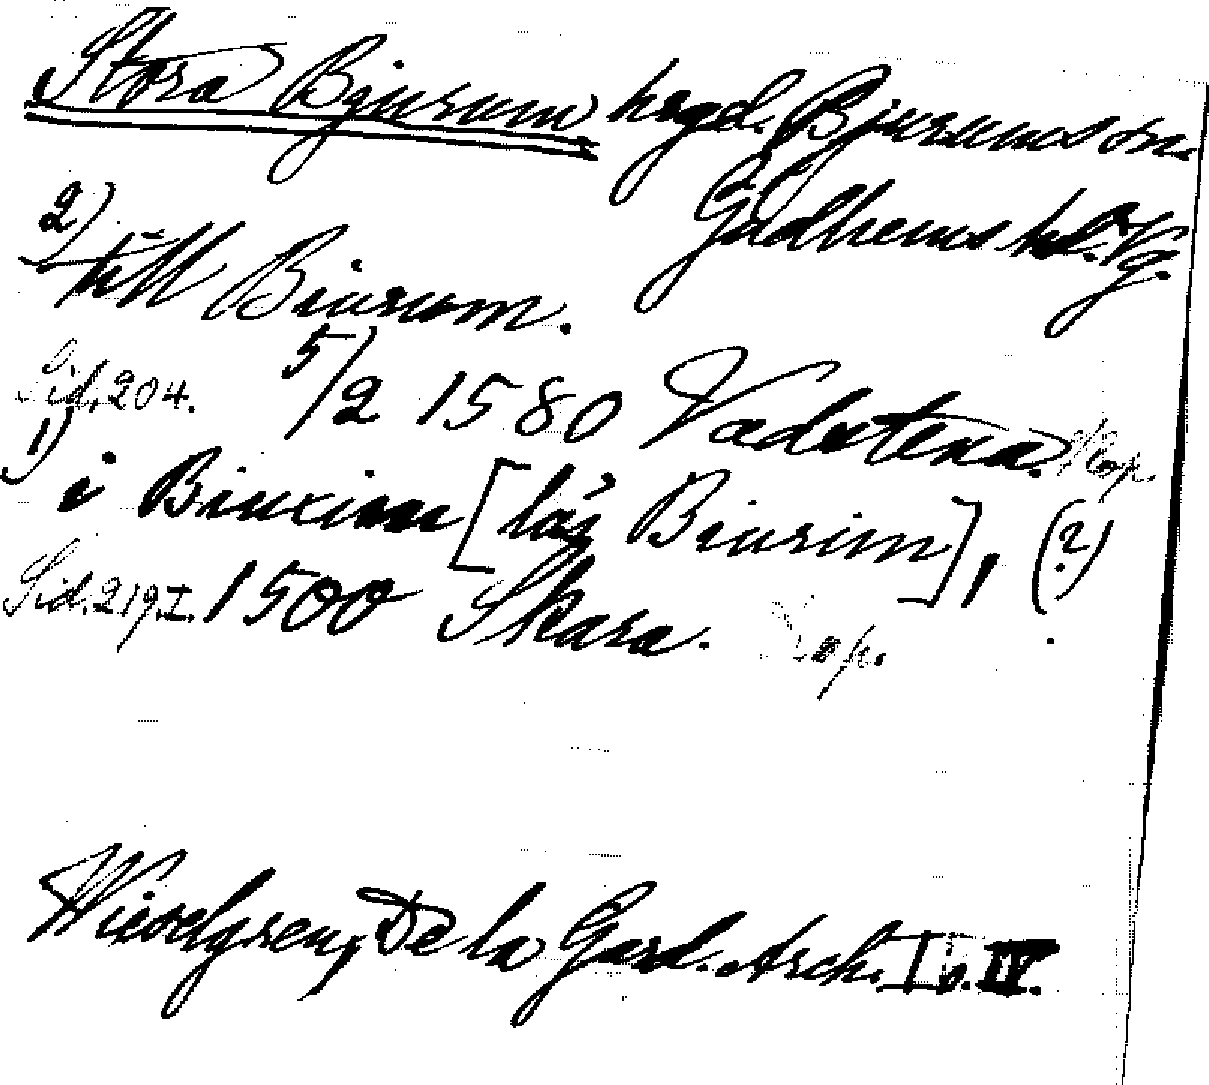 Stora Bjurum hrgd. Bjurums sn.
Gudhems hd. Vg.
2) till Biurum.
Sid. 204. 5/2 1580 Vadstena. Kop.
1) i Biuxim [läs Biurim], (?)
Sid. 219.I. 1500 Skara. Kop.
Wieselgren, De la Gard. Arch. I o. IV.